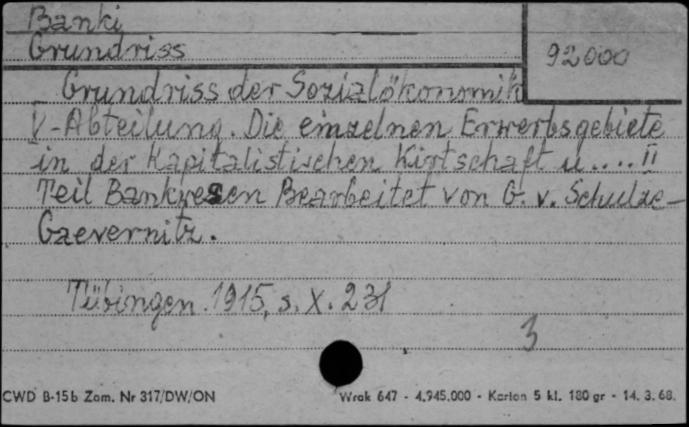 Banki
Grundriss
92000
Grundriss der Sozialökonomik
V-Abteilung. Die einzelnen Erwerbsgebiete
in der Kapitalistischen Kirtschaft u.... II
Teil Bankwesen Bearbeitet von G. v. Schulze-
Gaevernitz.
Tübingen 1915, s. X. 231
3
CWD B-15b Zam. Nr 317/DW/ON
Wrak 647 - 4.945.000 - Karton 5 kl. 180 gr - 14. 3. 68.